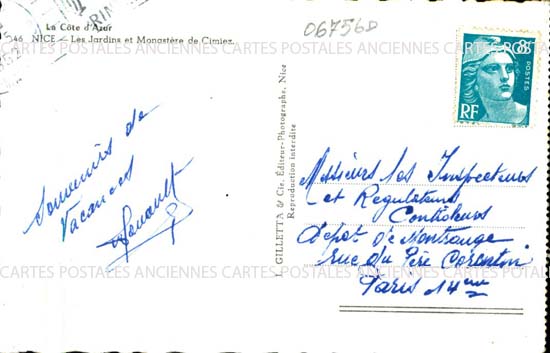 La Côte d'Azur
46 NICE - Les Jardins et Monastère de Cimiez.
06756D
8F
POSTES
RF
Souvenirs de
Vacances
J. GILLETTA & Cie, Éditeur-Photographe, Nice
Reproduction interdite
Messieurs les Inspecteurs
et Regulateurs
Controleurs
depot de Montrouge
rue du Père Corentin
Paris 14eme
CARTES POSTALES ANCIENNES CARTES POSTALES ANCIENNES CARTES POSTALES ANCIENNES
CARTES POSTALES ANCIENNES CARTES POSTALES ANCIENNES CARTES POSTALES ANCIENNES